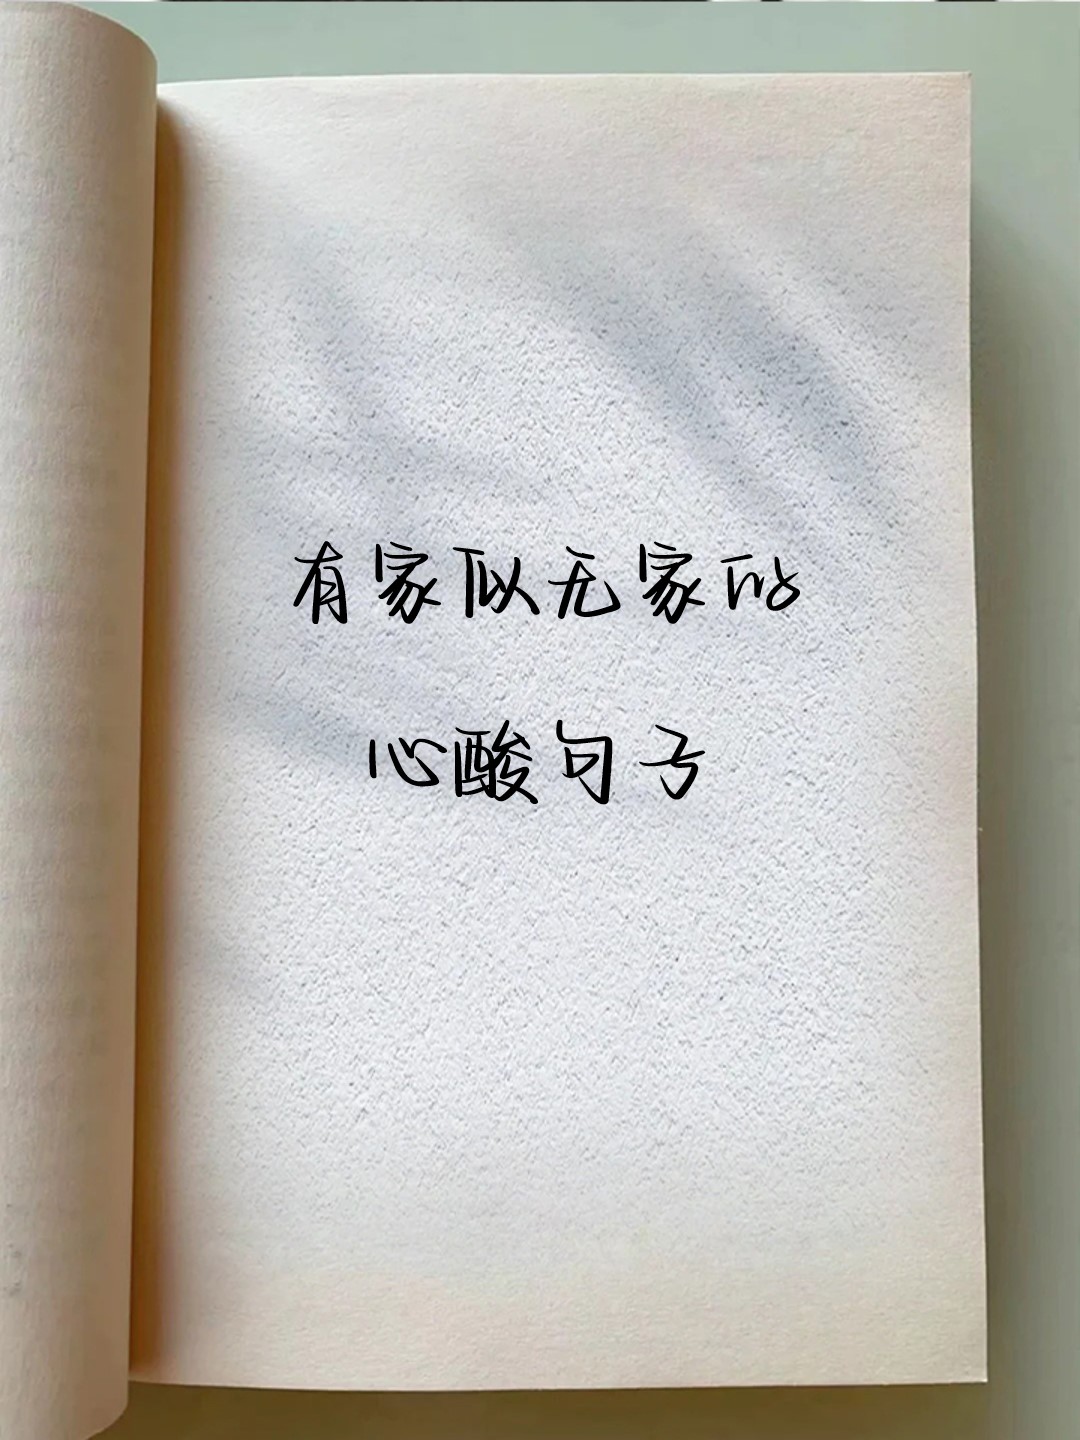 有家似无家的
心酸句子